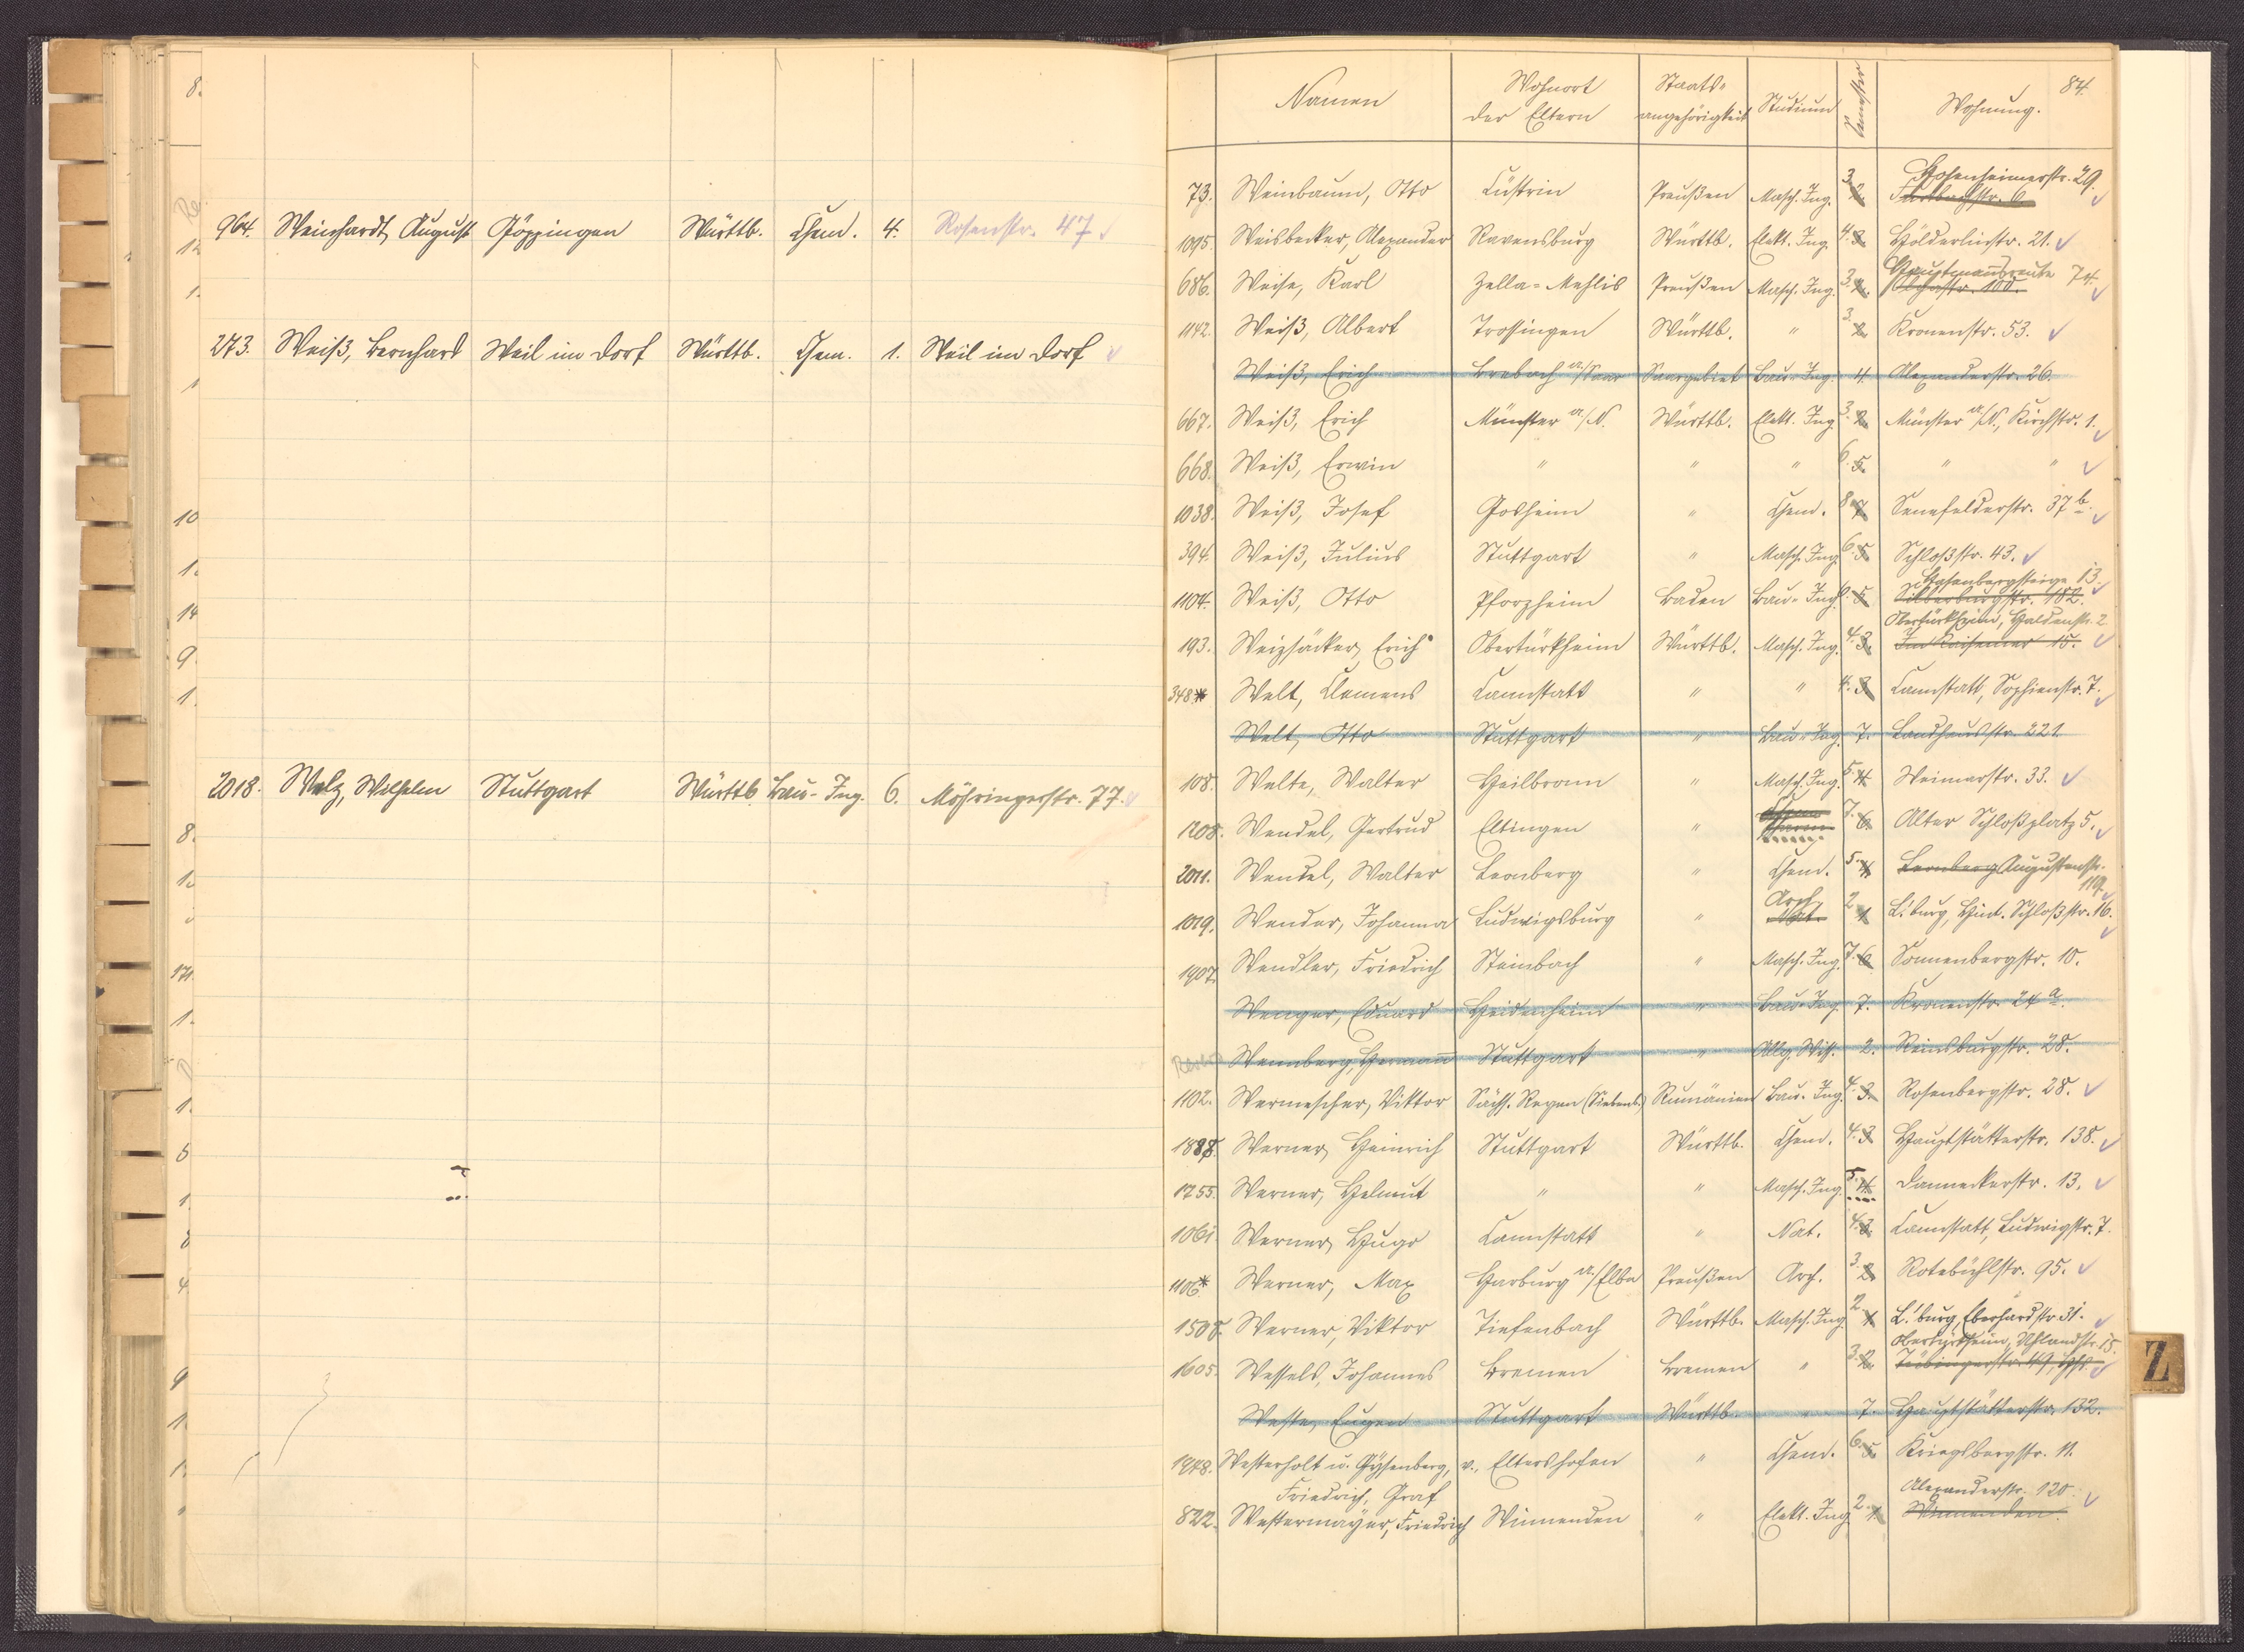 964. Weinhardt, August Göppingen Württb. Chem. 4. Rosenstr. 47
273. Weiß, Bernhard Weil im Dorf Württb. Chem. 1. Weil im Dorf
2018. Welz, Wilhelm Stuttgart Württb. Bau-Ing. 6. Möhringerstr. 77.
84.
Namen Wohnort der Eltern Staats-angehörigkeit Studium Semester Wohnung.
73. Weinbaum, Otto Cüstrin Preußen Masch. Ing. 3. 2. Hohenheimerstr. 29.
1095. Weisbecker, Alexander Ravensburg Württb. Elekt. Ing. 4. 3. Hölderlinstr. 21.
686. Weise, Karl Zella-Mehlis Preußen Masch. Ing. 3. 2. Hauptmannsreute 74.
1142. Weiß, Albert Trossingen Württb. " 3. 2. Kronenstr. 53.
Weiß, Erich Brebach a/Saar Saargebiet Bau-Ing. 4. Alexanderstr. 26.
667. Weiß, Erich Münster a/N. Württb. Elekt. Ing. 3. 2. Münster a/N., Kirchstr. 1.
668. Weiß, Erwin " " " 6. 5. " "
1038. Weiß, Josef Gosheim " Chem. 8. 7. Senefelderstr. 37 b.
394. Weiß, Julius Stuttgart " Masch. Ing. 6. 5. Schloßstr. 43.
1104. Weiß, Otto Pforzheim Baden Bau-Ing. 6. 5. Hasenbergsteige 13. Silberburgstr. 182.
193. Weizsäcker, Erich Obertürkheim Württb. Masch. Ing. 4. 3. Obertürkheim, Haldenstr. 2. Im Kaisemer 15.
348* Welt, Clemens Cannstatt " " 4. 3. Cannstatt, Sophienstr. 7.
Welt, Otto Stuttgart " Bau-Ing. 7. Landhausstr. 221.
108. Welte, Walter Heilbronn " Masch. Ing. 5. 4. Weimarstr. 33.
1208. Wendel, Gertrud Eltingen " 7. 6. Alter Schloßplatz 5.
2011. Wendel, Walter Leonberg " Chem. 5. 4. Leonberg Augustenstr. 119.
1019. Wender, Johanna Ludwigsburg " Arch. Nat. 2. 1. L'burg, Hint. Schloßstr. 16.
1907. Wendler, Friedrich Steinbach " Masch. Ing. 7. 6. Sonnenbergstr. 10.
Wenger, Eduard Heidenheim " Bau-Ing. 7. Kronenstr. 24 a.
Wennberg, Hermann Stuttgart " Allg. Wiss. 2. Reinsburgstr. 28.
1102. Wermescher, Viktor Sächs. Regen (Siebenb.) Rumänien Bau-Ing. 4. 3. Rosenbergstr. 28.
1888. Werner, Heinrich Stuttgart Württb. Chem. 4. 3. Hauptstätterstr. 138.
1255. Werner, Helmut " " Masch. Ing. 5. 4. Danneckerstr. 13.
1061. Werner, Hugo Cannstatt " Nat. 4. 3. Cannstatt, Ludwigstr. 7.
1106* Werner, Max Harburg a./Elbe Preußen Arch. 3. 2. Rotebühlstr. 95.
1508. Werner, Viktor Tiefenbach Württb. Masch. Ing. 2. 1. L'burg, Eberhardstr. 31.
1605. Wessels, Johannes Bremen Bremen " 3. 2. Obertürkheim, Uhlandstr. 15.
Weste, Eugen Stuttgart Württb. " 7. Hauptstätterstr. 132.
1948. Westerholt u. Gysenberg, v., Friedrich, Graf Eltershofen " Chem. 6. 5. Kriegsbergstr. 11.
822. Westermayer, Friedrich Winnenden " Elekt. Ing. 2. 1. Alexanderstr. 120. Winnenden.
Z